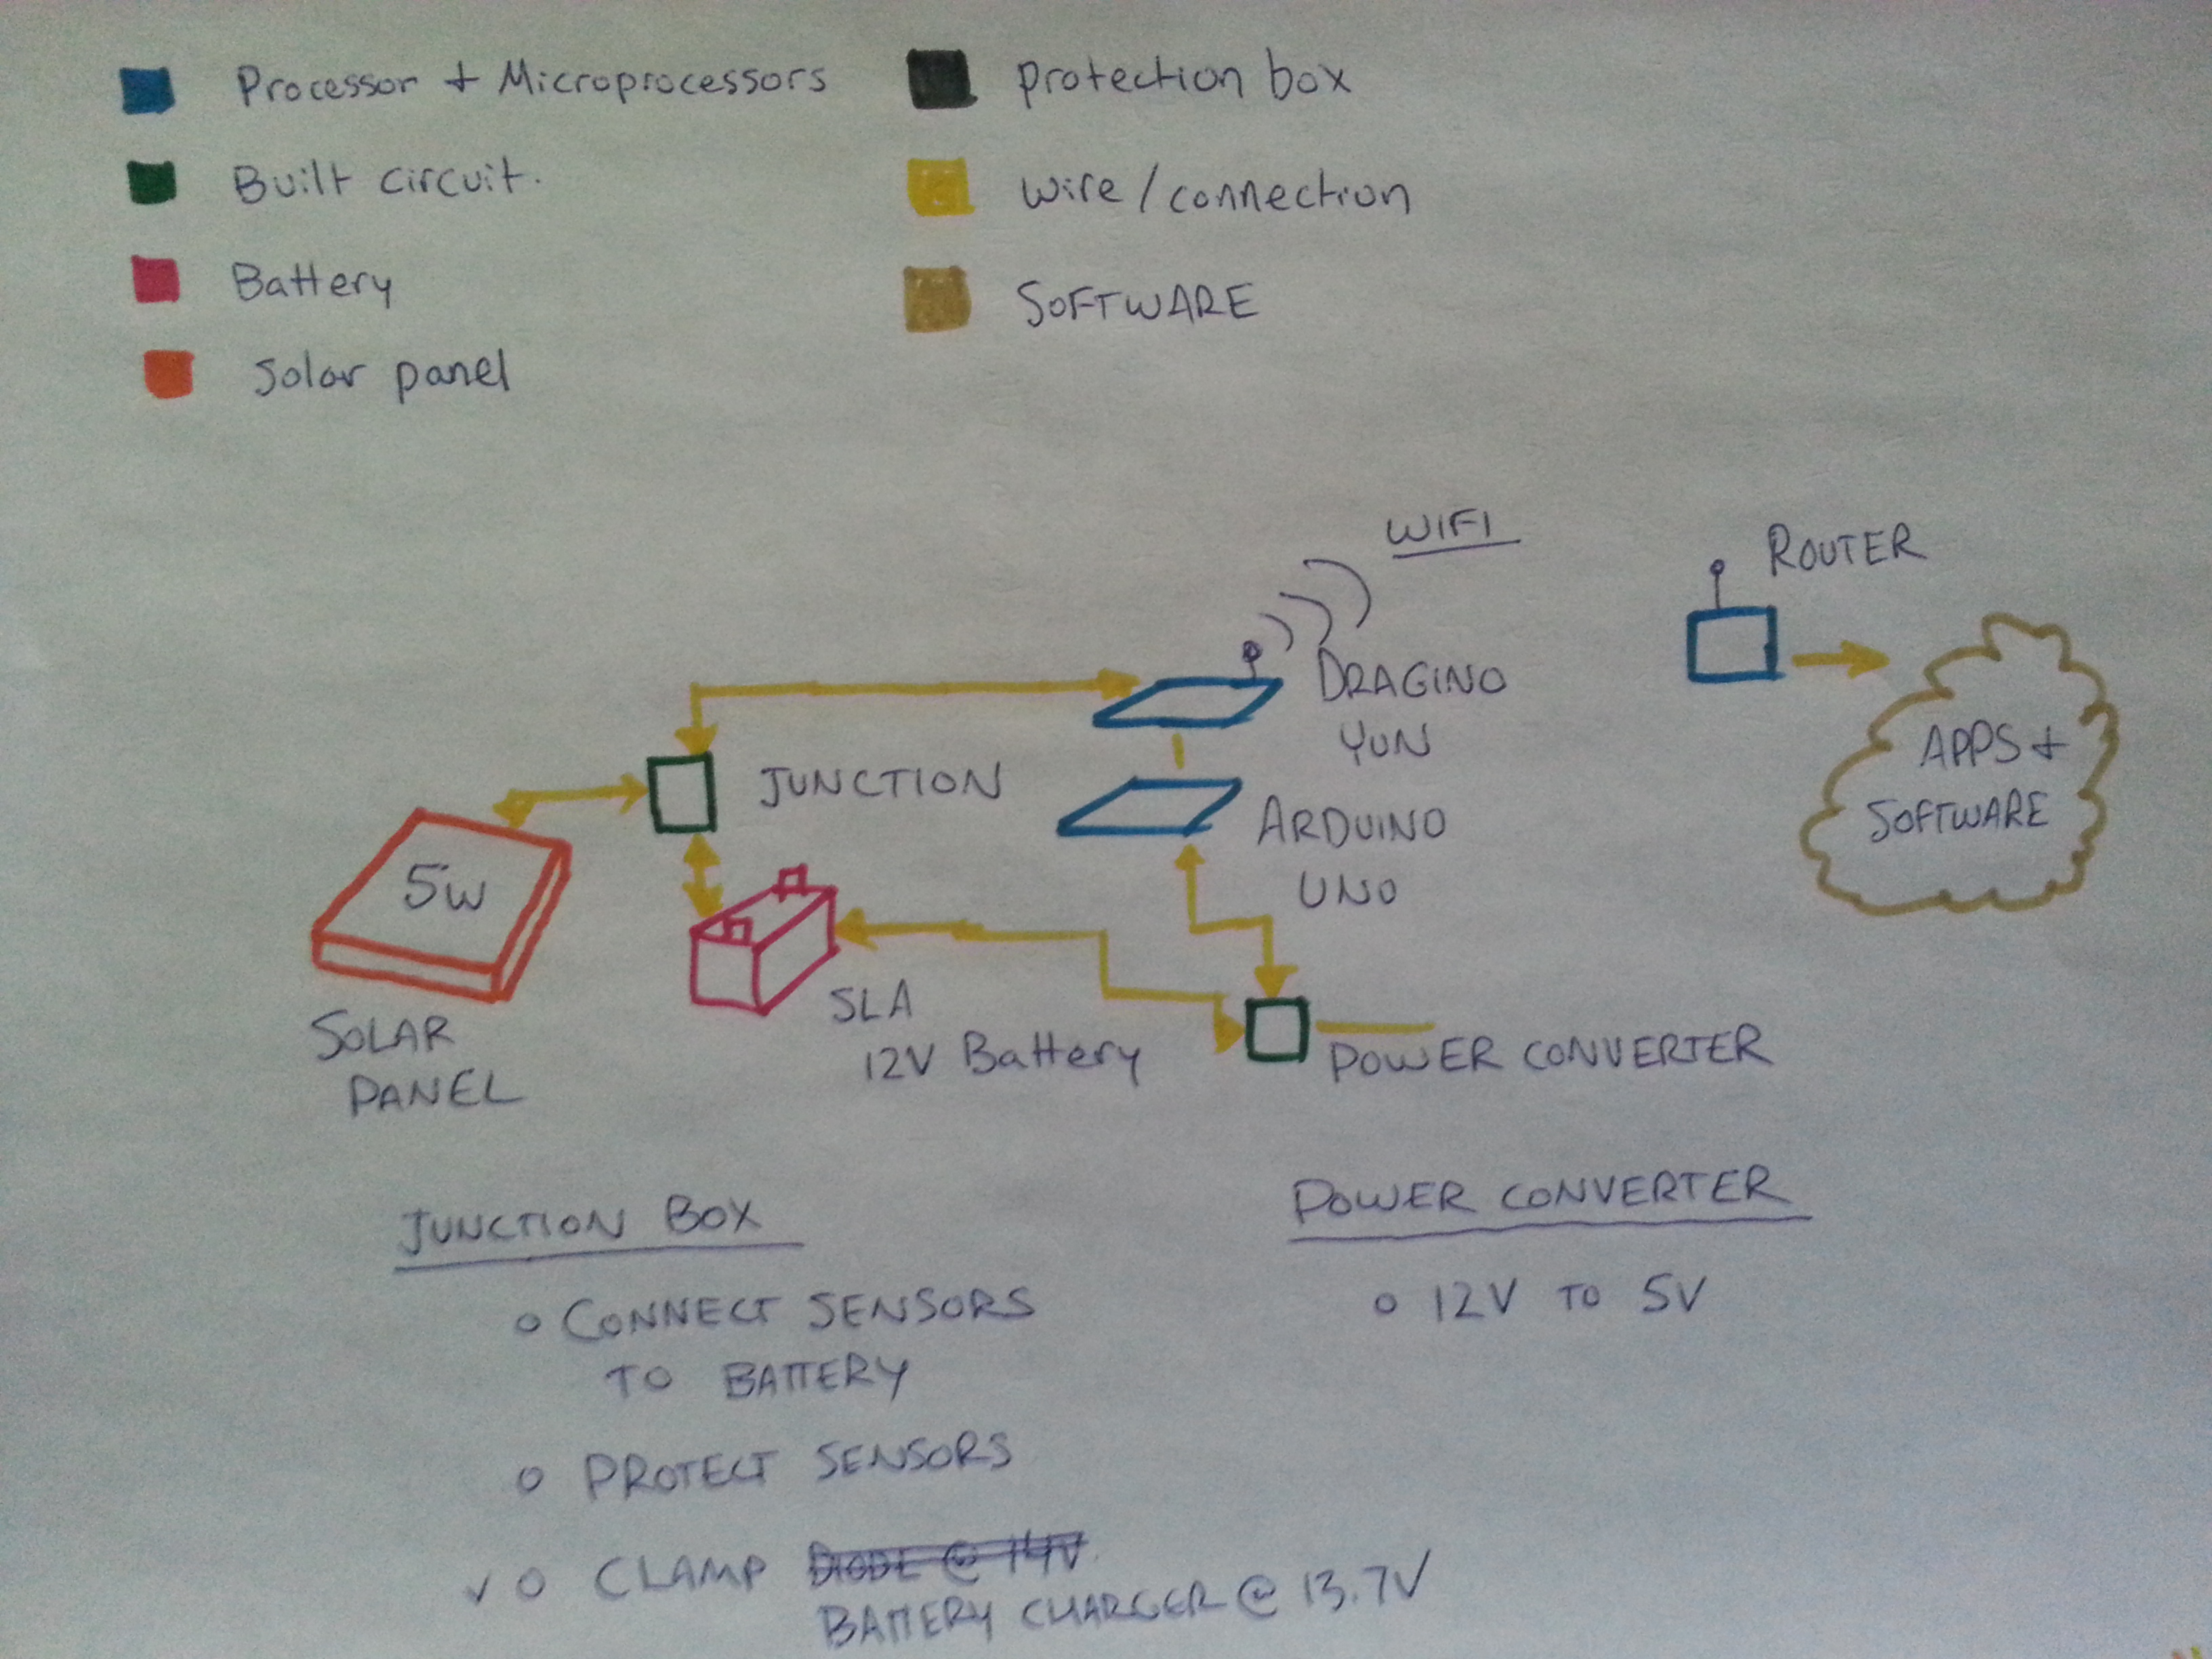 Processor + Microprocessors
Built circuit.
Battery
Solar panel
Protection box
Wire/connection
SOFTWARE
WIFI
ROUTER
DRAGINO
YUN
APPS +
SOFTWARE
JUNCTION
ARDUINO
UNO
5W
SOLAR
PANEL
SLA
12V Battery
POWER CONVERTER
JUNCTION BOX
o CONNECT SENSORS
TO BATTERY
o PROTECT SENSORS
✓ o CLAMP DIODE @ 14V
BATTERY CHARGER @ 13.7V
POWER CONVERTER
o 12V TO 5V